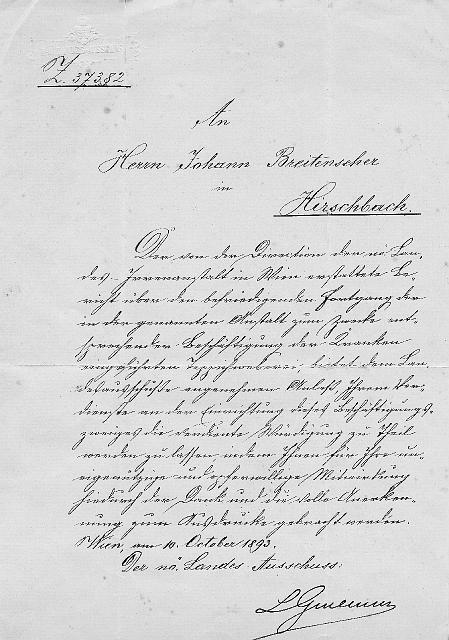 Z. 37382
An
Herrn Johann Breitenscher
in
Hirschbach.
Der von der Direction der nö Lan-
des-Irrenanstalt in Wien erstattete Be-
richt über den befriedigenden Fortgang der
in der genannten Anstalt zum Zwecke ent-
sprechender Beschäftigung der Kranken
eingeführten Teppichweberei, bietet dem Lan-
desausschuße angenehmen Anlaß, Ihrem Ver-
dienste an der Einrichtung dieses Beschäftigungs-
zweiges die verdiente Würdigung zu Theil
werden zu lassen indem Ihnen für Ihre un-
eigennützige und opferwillige Mitwirkung
hiedurch der Dank und die volle Anerken-
nung zum Ausdrucke gebracht werden.
Wien, am 10. October 1893.
Der nö. Landes-Ausschuss: